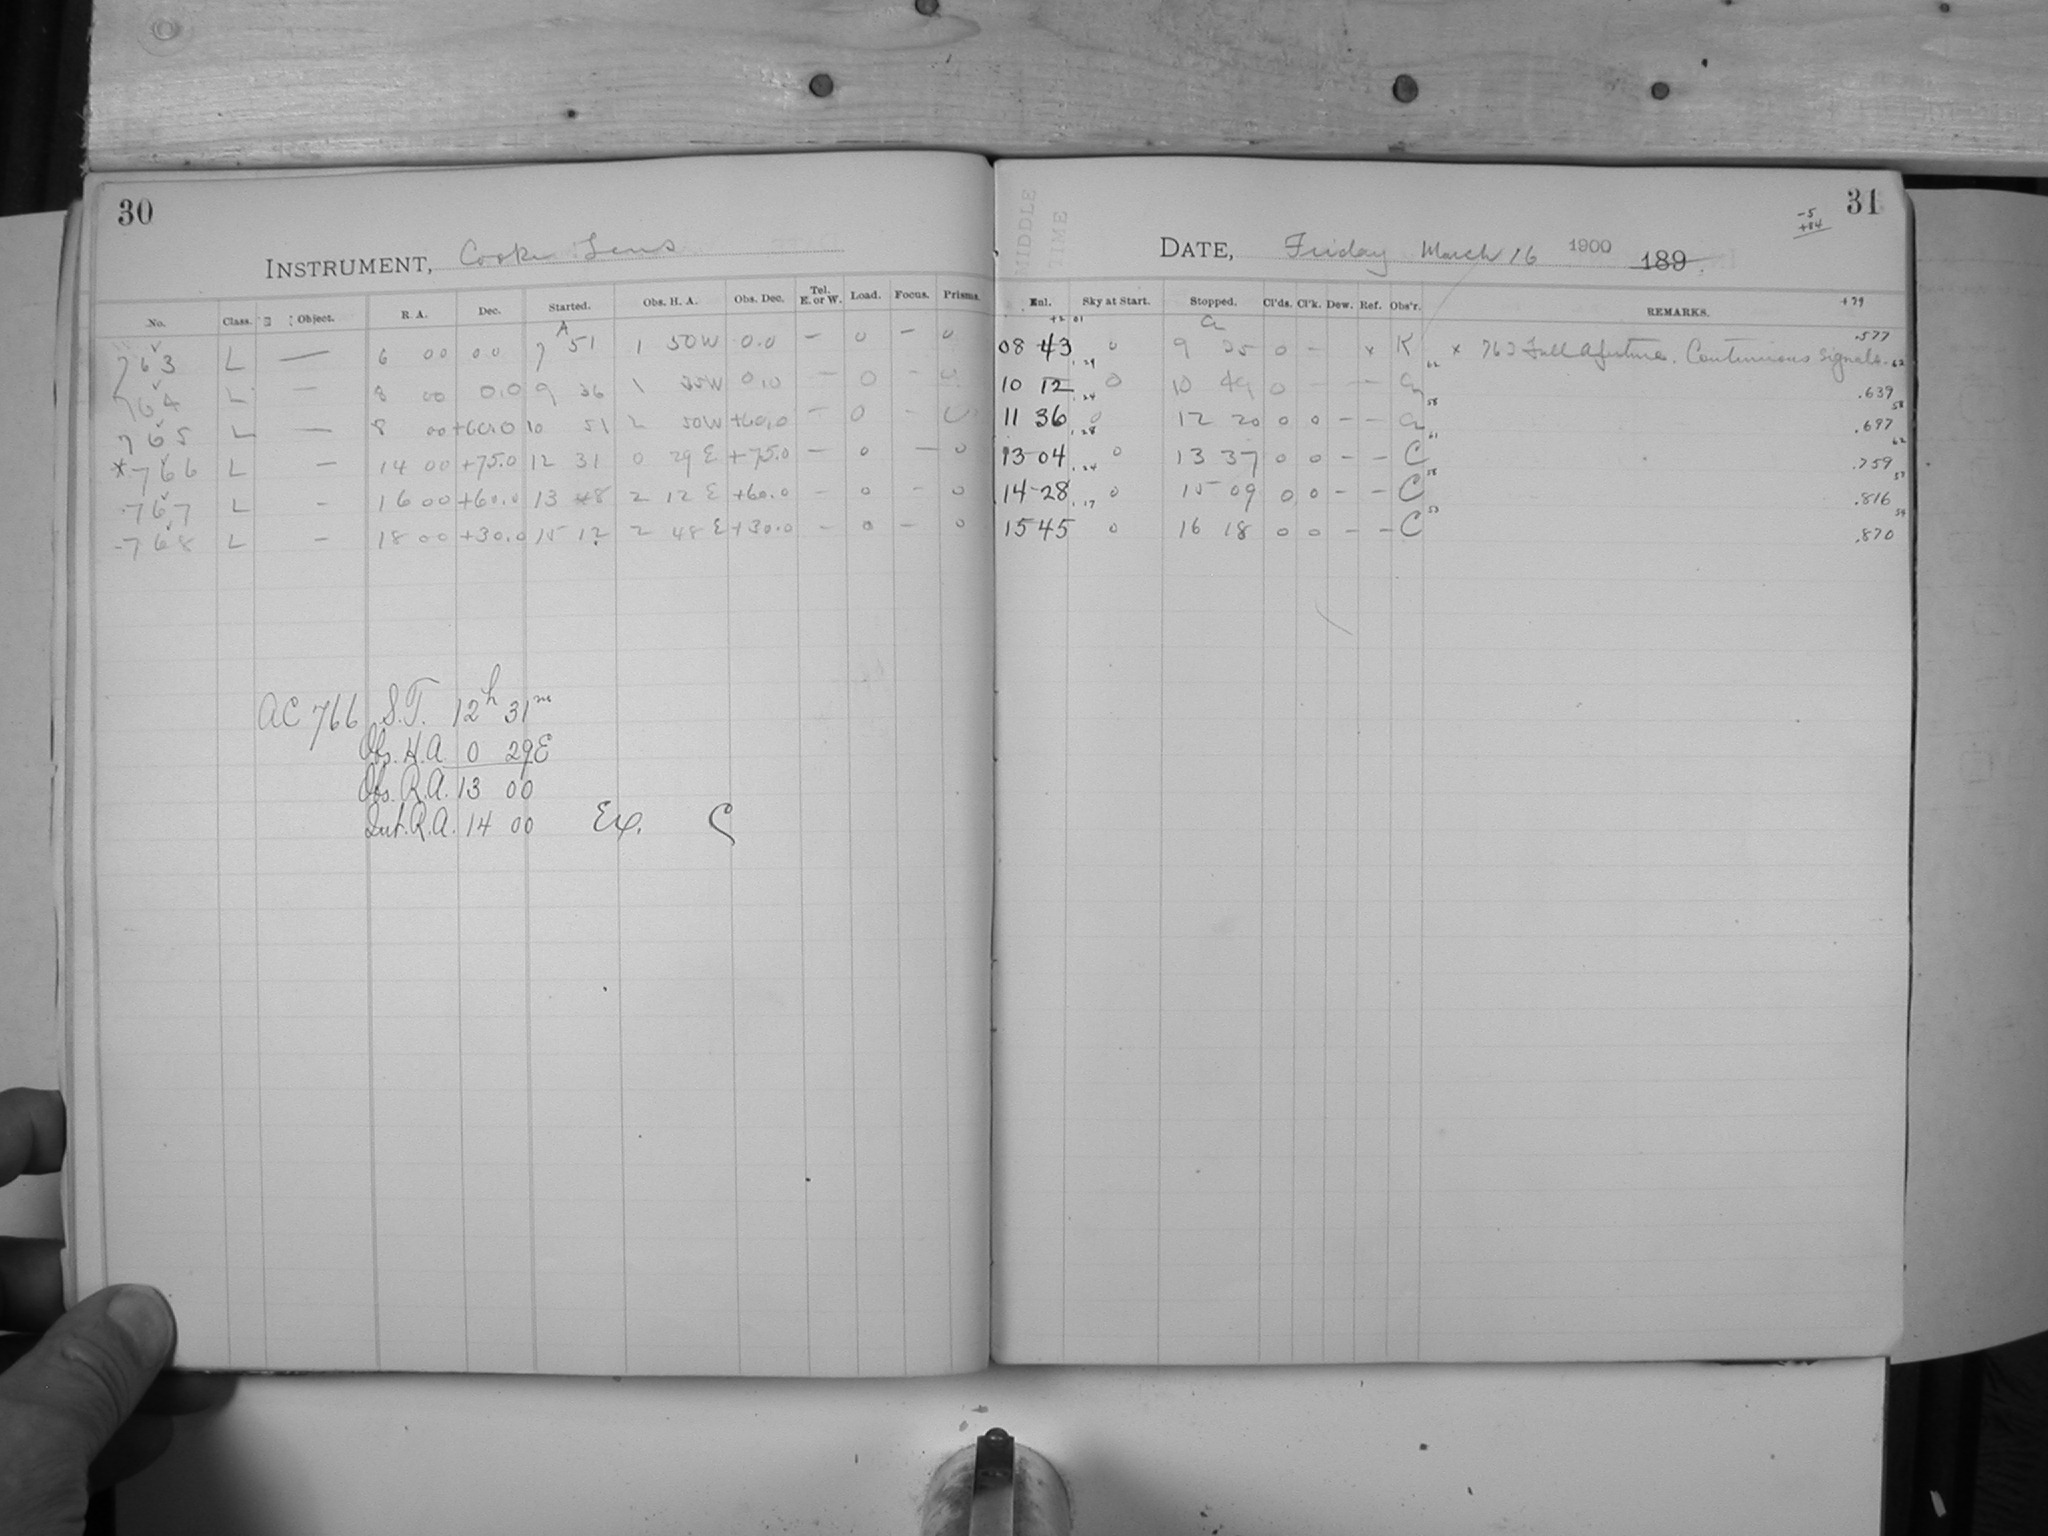 30
INSTRUMENT, Cooke Lens
No. Class. Object. R. A. Dec. Started. Obs. H. A. Obs. Dec. Tel. E. or W. Load. Focus. Prisms.
A
763 L — 6 00 00 7 51 1 50W 0.0 — 0 — 0
764 L — 8 00 0.0 9 36 1 W 0.0 — 0 — 0
765 L — 8 00 +60.0 10 51 2 50W +60.0 — 0 — 0
*766 L — 14 00 +75.0 12 31 0 29 E +75.0 — 0 — 0
767 L — 16 00 +60.0 13 48 2 12 E +60.0 — 0 — 0
768 L — 18 00 +30.0 15 12 2 48 E +30.0 — 0 — 0
AC 766 S.T. 12h 31m
Obs. H.A. 0 29E
Obs. R.A. 13 00
Int. R.A. 14 00 Ex. C
31
-5
+84
MIDDLE
TIME
DATE, Friday March 16 1900 189 .
+79
Enl. Sky at Start. Stopped. Cl'ds. Cl'k. Dew. Ref. Obs'r. REMARKS.
a
08 43 0 9 25 0 — x K x 763 Full Aperture. Continuous signals. .577
.29 62 62
10 12 0 10 49 0 — — — a .639
.24 58 58
11 36 0 12 20 0 0 — — a .697
.28 61 62
13 04 0 13 37 0 0 — — C .759
.24 58 57
14 28 0 15 09 0 0 — — C .816
.17 53 54
15 45 0 16 18 0 0 — — C .870